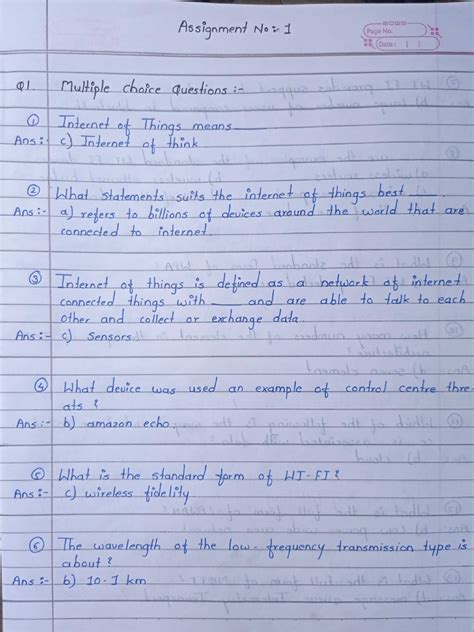 Assignment No :- 1
Page No.
Date: | |
Q1. Multiple choice Questions :-
① Internet of Things means
Ans :- c) Internet of think
② What statements suits the internet of things best.
Ans :- a) refers to billions of devices around the world that are
connected to internet.
③ Internet of things is defined as a network of internet
connected things with ____ and are able to talk to each
other and collect or exchange data.
Ans :- c) Sensors
④ What device was used an example of control centre thre-
ats ?
Ans :- b) amazon echo
⑤ What is the standard form of WI-FI ?
Ans :- c) wireless fidelity
⑥ The wavelength of the low-frequency transmission type is
about ?
Ans :- b) 10-1 km